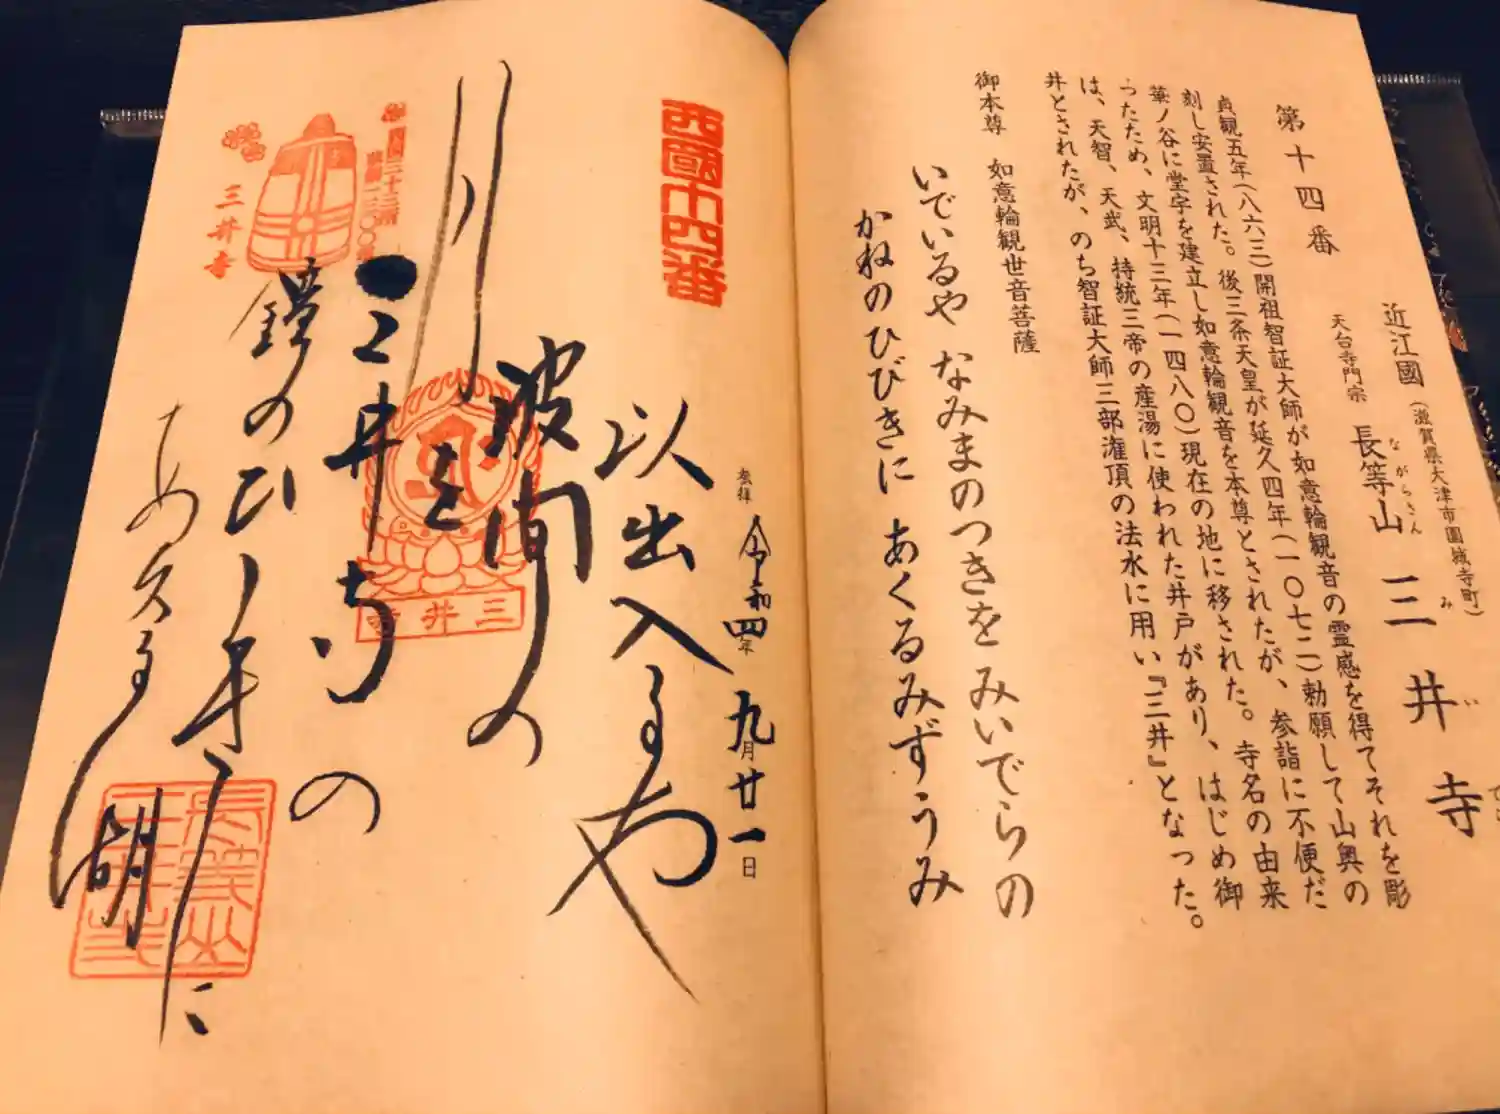 第十四番
近江國（滋賀県大津市園城寺町）
天台寺門宗 長等山 三井寺
ながらさん み い でら
貞観五年（八六三）開祖智証大師が如意輪観音の霊感を得てそれを彫
刻し安置された。後三条天皇が延久四年（一〇七二）勅願して山奥の
華ノ谷に堂宇を建立し如意輪観音を本尊とされたが、参詣に不便だ
ったため、文明十三年（一四八〇）現在の地に移された。寺名の由来
は、天智、天武、持統三帝の産湯に使われた井戸があり、はじめ御
井とされたが、のち智証大師三部潅頂の法水に用い『三井』となった。
御本尊 如意輪観世音菩薩
いでいるや なみまのつきを みいでらの
かねのひびきに あくるみずうみ
西國十四番
奉拝 令和四年九月廿一日
以出入るや
波間の
月を
三井寺の
鐘のひゞきに
あくる湖
三井寺
四国三十三所
草創一三〇〇年
三井寺